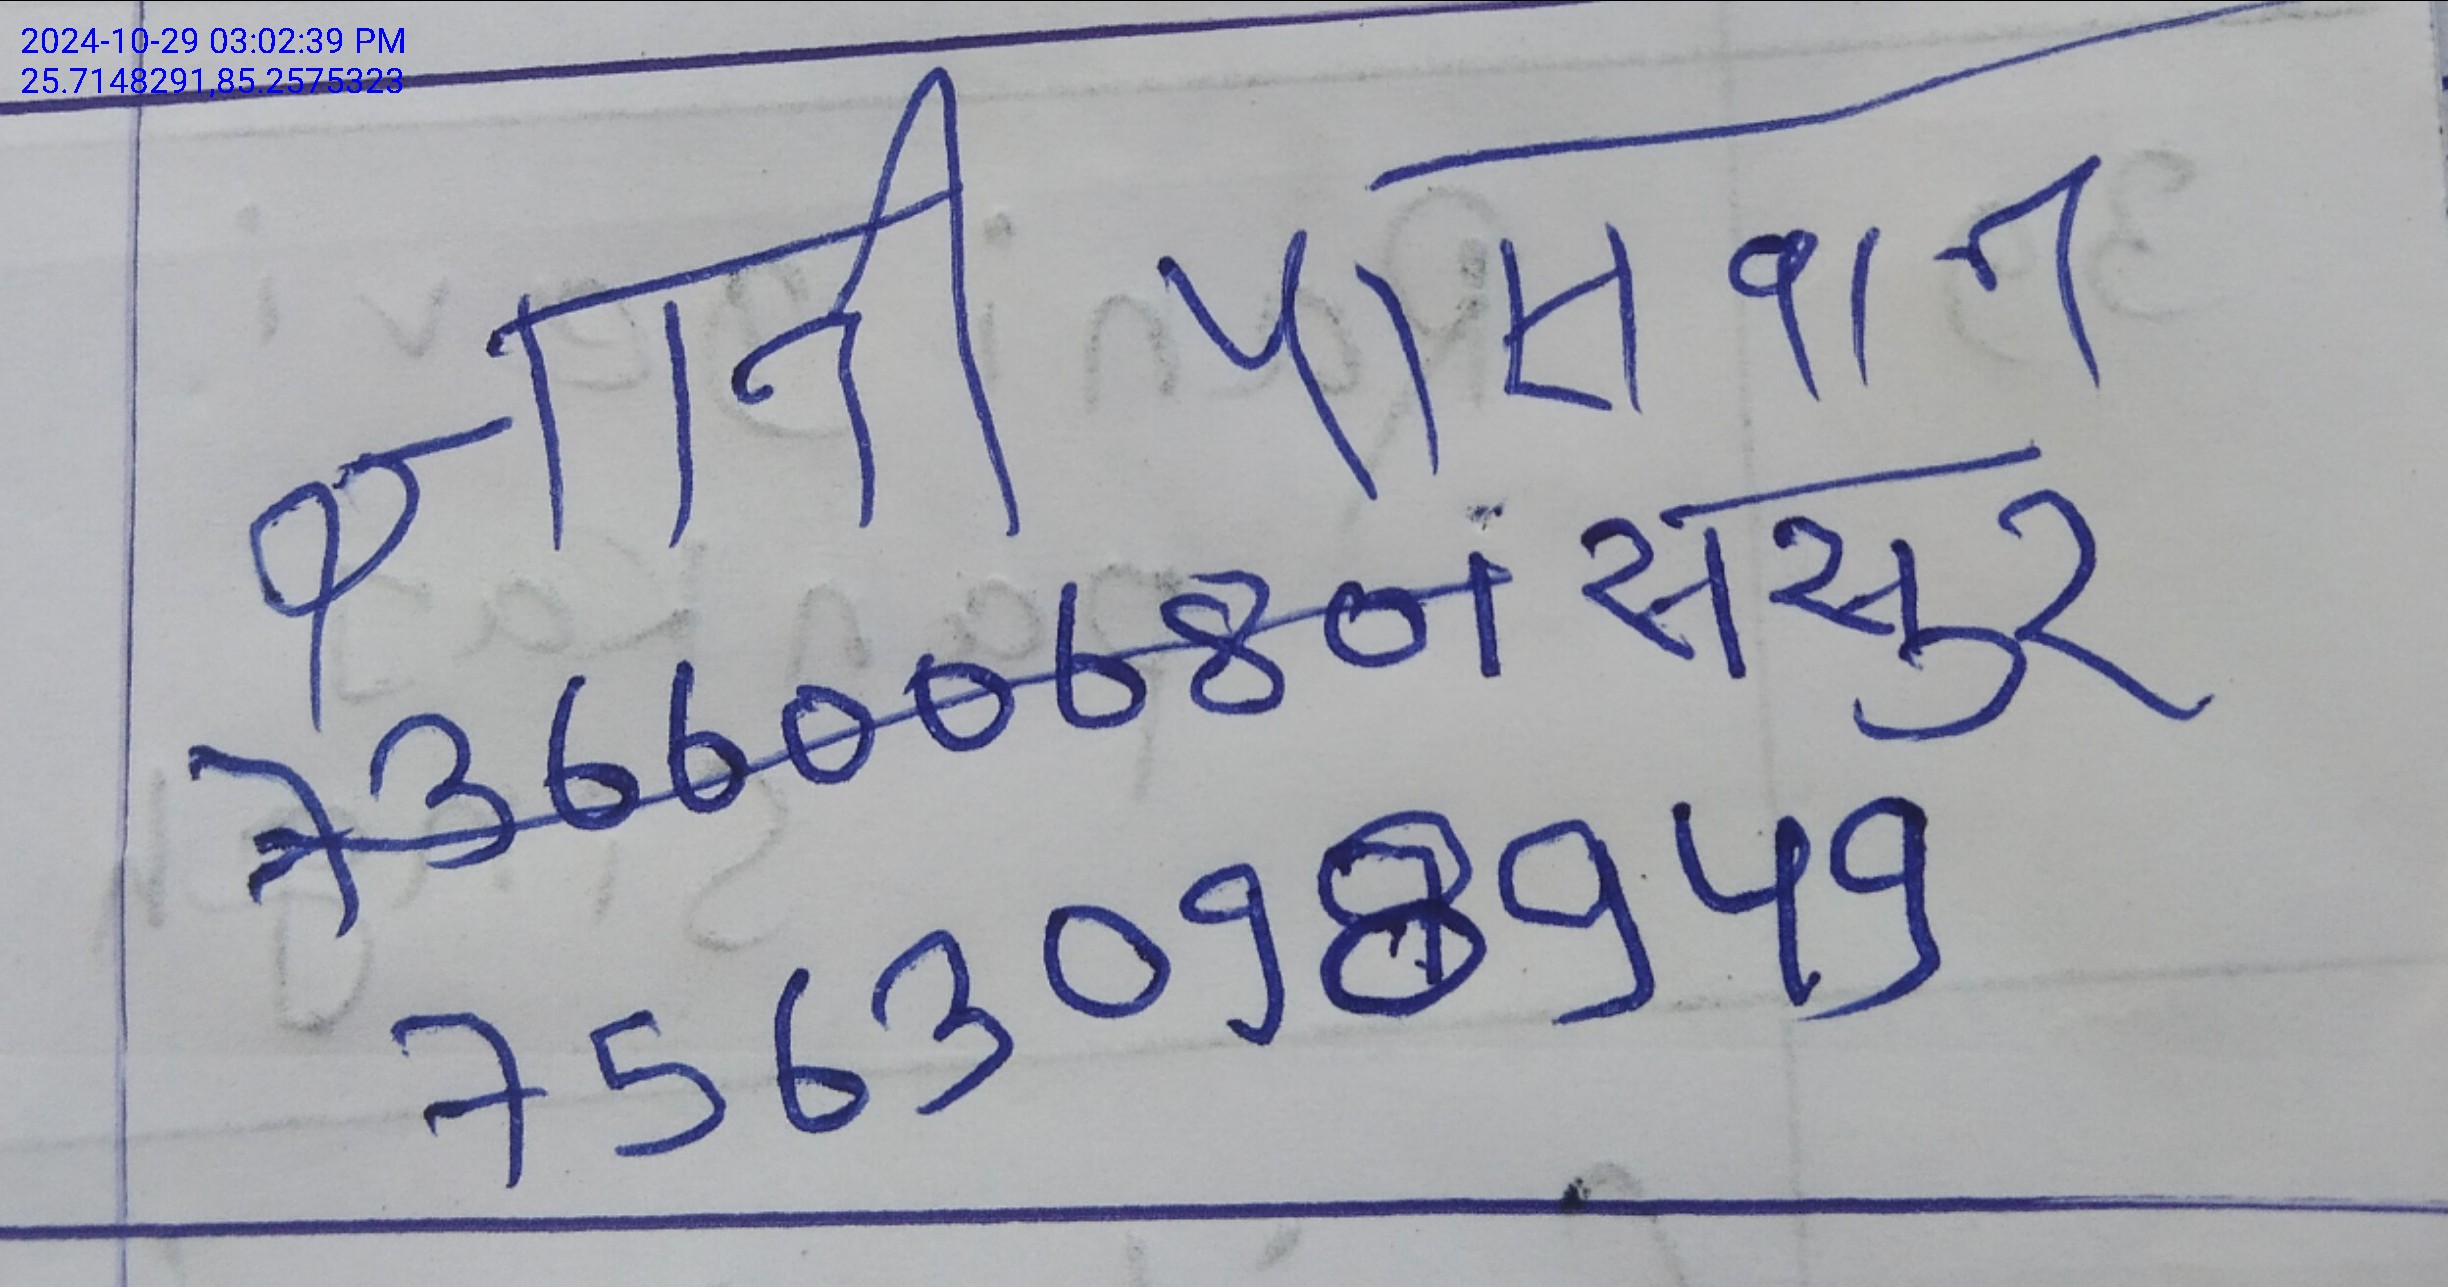 2024-10-29 03:02:39 PM
25.7148291,85.2575323
ज्ञानी पासवान
7366006801 ससुर
7563098949